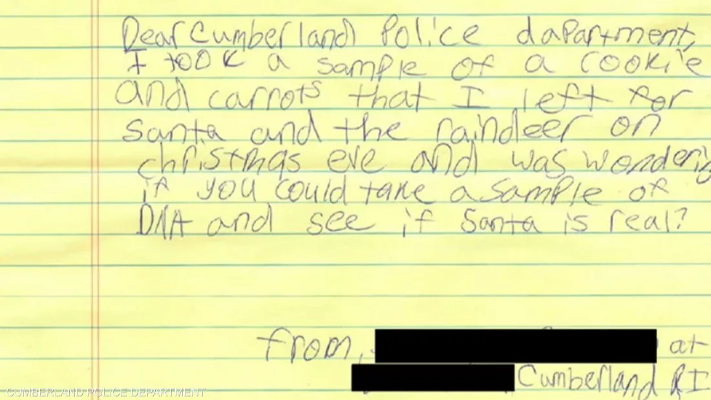 Dear Cumberland Police dapartment,
I took a sample of a cookie
and carrots that I left for
Santa and the raindeer on
christmas eve and was wondering
if you could take a sample of
DNA and see if Santa is real?
from,
at
Cumberland RI
CUMBERLAND POLICE DEPARTMENT